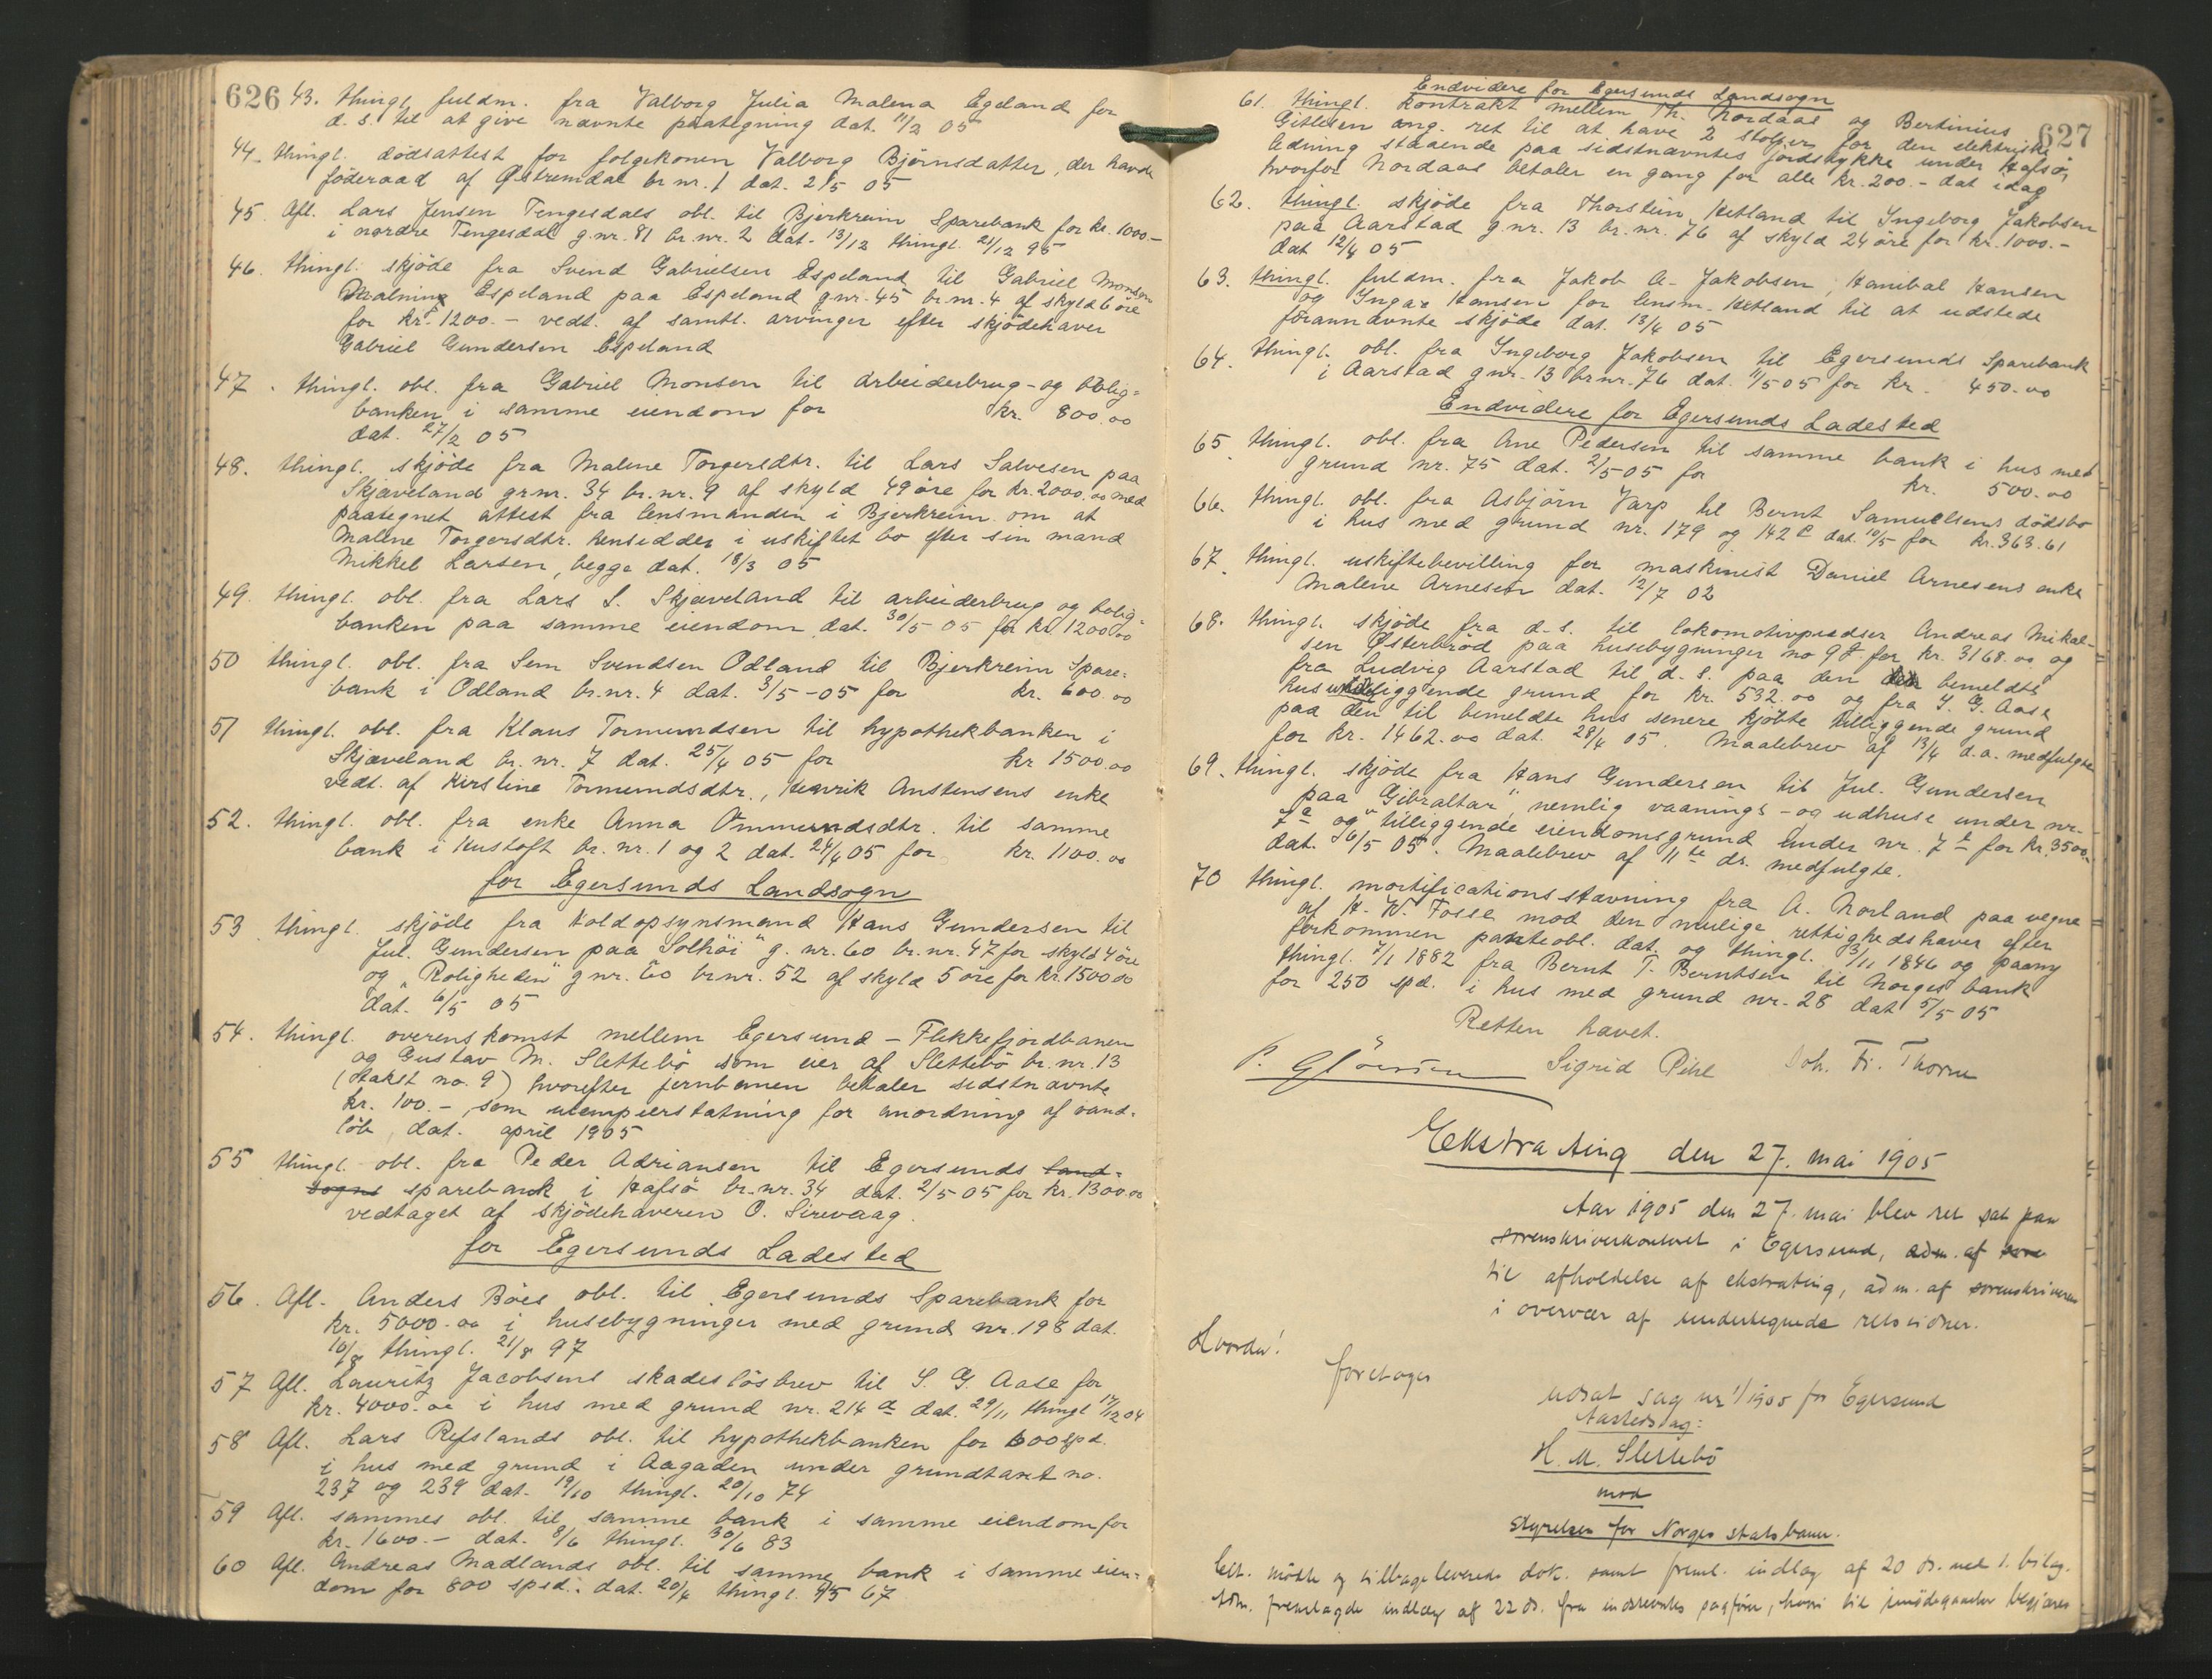 626
43. thingl. fuldm. fra Valborg Julia Malena Egeland for
d. s. til at give nævnte paategning dat. 11/2 05
44. thingl. dödsattest for folgekonen Valborg Björnsdatter, der havde
föderaad af Østremdal br nr. 1 dat. 2/5 05
45. Afl. Lars Jensen Tengesdals obl. til Bjerkreim Sparebank for kr. 1000.-
i nordre Tengesdal g.nr. 81 br.nr. 2 dat. 13/12 thingl. 21/12 95
46. thingl. skjöde fra Svend Gabrielsen Espeland til Gabriel Monsen
Malning Espeland paa Espeland g.nr. 45 br.nr. 4 af skyld 6 öre
for kr. 1200.- vedt. af samtl. arvinger efter skjödehaver
Gabriel Gundersen Espeland
47. thingl. obl. fra Gabriel Monsen til arbeiderbrug- og bolig=
banken i samme eiendom for kr. 800.00
dat. 27/2 05
48. thingl. skjöde fra Malene Torgersdtr. til Lars Salvesen paa
Skjæveland gr.nr. 34 br.nr. 9 af skyld 49 öre for kr. 2000.00 med
paategnet attest fra lensmanden i Bjerkreim om at
Malene Torgersdtr. hensidder i uskiftet bo efter sin mand
Mikkel Larsen, begge dat. 18/3 05
49. thingl. obl. fra Lars S. Skjæveland til arbeiderbrug og bolig-
banken paa samme eiendom dat. 30/5 05 for kr. 1200.00
50 thingl. obl. fra Sem Svendsen Odland til Bjerkreim Spare-
bank i Odland br.nr. 4 dat. 3/5-05 for kr. 600.00
51 thingl. obl. fra Klaus Tormundsen til hypothekbanken i
Skjæveland br. nr. 7 dat. 25/4 05 for kr 1500.00
vedt. af Kirstine Tormundsdtr., Henrik Austensens enke
52. thingl. obl. fra enke Anna Ommundsdtr. til samme
bank i Hustoft br. nr. 1 og 2 dat. 24/4 05 for kr. 1100.00
for Egersunds Landsogn
53 thingl. skjöde fra toldopsynsmand Hans Gundersen til
Jul. Gundersen paa "Solhöi" g. nr. 60 br. nr. 47 for skyld 4 öre
og "Roligheden" g nr. 60 br.nr. 52 af skyld 5 öre for kr. 1500.00
dat. 6/5 05
54. thingl. overenskomst mellem Egersund - Flekkefjordbanen
og Gustav M. Slettebö som eier af Slettebö br. nr. 13
(takst no. 9) hvorefter jernbanen betaler sidstnævnte
kr. 100.-, som ulempeerstatning for anordning af vand-
löb, dat. april 1905
55 thingl. obl. fra Peder Adriansen til Egersunds land-
sogns sparebank i Hafsö br.nr. 34 dat. 2/5 05 for kr. 1300.00
vedtaget af skjödehaveren O. Sirevaag.
for Egersunds Ladested
56. Afl. Anders Böes obl. til Egersunds Sparebank for
kr. 5000.00 i husebygninger med grund nr. 198 dat.
16/8 thingl. 21/8 97
57 Afl. Lauritz Jacobsens skadeslösbrev til S. G. Aase for
kr. 4000.00 i hus med grund nr. 214 a dat. 29/11 thingl 17/12 04
58 Afl. Lars Refslands obl. til hypothekbanken for 600 spd.
i hus med grund i Aagaden under grundtaxt no.
237 og 239 dat. 19/10 thingl. 20/10 74
59 Afl. sammes obl. til samme bank i samme eiendom for
kr. 1600.- dat. 8/6 thingl. 30/6 83
60 Afl. Andreas Madlands obl. til samme bank i samme eien=
dom for 800 spd. dat. 20/4 thingl. 9/5 67
627
Endvidere for Egersunds Landsogn
61. thingl. kontrakt mellem Th. Nordaas og Bertinius
Gitlesen ang. ret til at have 2 stolper for den elektriske
ledning staaende paa sidstnævntes jordstykke under Hafsö,
hvorfor Nordaas betaler en gang for alle kr. 200.- dat idag
62. thingl. skjöde fra Thorstein Hetland til Ingeborg Jakobsen
paa Aarstad g.nr. 13 br.nr. 76 af skyld 24 öre for kr. 1000.-
dat 12/4 05
63. thingl. fuldm. fra Jakob A. Jakobsen, Hanibal Hansen
og Ingar Hansen for lensm. Hetland til at udstede
forannævnte skjöde dat. 13/4 05
64. thingl. obl. fra Ingeborg Jakobsen til Egersunds Sparebank
i Aarstad g nr. 13 br.nr. 76 dat. 11/5 05 for kr. 450.00
Endvidere for Egersunds Ladested
65. thingl. obl. fra Ane Pedersen til samme bank i hus med
grund nr. 75 dat. 2/5-05 for kr. 500.00
66. thingl. obl. fra Asbjörn Varp til Bernt Samuelsens dödsbo
i hus med grund nr. 179 og 142 c dat. 10/5 for kr. 363.61
67. thingl. uskiftebevilling for maskinist Daniel Arnesens enke
Malene Arnesen dat. 12/7 02
68. thingl. skjöde fra d.s. til lokomotivpudser Andreas Mikal-
sen Østerbröd paa husebygninger no 9 for kr. 3168.00 og
fra Ludvig Aarstad til d.s. paa den bemeldte
hus liggende grund for kr. 532.00 og fra S. G. Aase
paa den til bemeldte hus senere kjöbte tilliggende grund
for kr. 1462.00 dat. 28/4 05. Maalebrev af 13/4 d.a. medfulgte
69. thingl. skjöde fra Hans Gundersen til Jul. Gundersen
paa "Gibraltar", nemlig vaanings- og udhuse under nr.
7 e og tilliggende eiendomsgrund under nr. 7 e for kr. 3500.-
dat. 6/5 05. Maalebrev af 11te ds. medfulgte.
70 thingl. mortificationsstævning fra A. Norland paa vegne
af H. W. Fosse mod den mulige rettighedshaver efter
forkommen panteobl. dat. og thingl. 13/11 1846 og paany
thingl. 7/1 1882 fra Bernt T. Berntsen til Norges bank
for 250 spd. i hus med grund nr. 28 dat 5/5 05
Retten hævet.
Sigrid Pihl Joh. Fr. Thorne
Ekstrating den 27. mai 1905
Aar 1905 den 27. mai blev ret sat paa
sorenskriverkontoret i Egersund, adm. af sore
til afholdelse af ekstrating, adm. af sorenskriveren
i overvær af undertegnede retsvidner.
Hvorda!
foretoges
udsat sag nr 1/1905 for Egersund
Aastedssag:
H. M. Slettebö
mod
Styrelsen for Norges statsbaner.
Cit. mödte og tilbageleverede dok. samt freml. indlæg af 20 ds. med 1. bilag.
Adm. fremlagde indlæg af 22 ds. fra indstevntes sagförer, hvori til begjæres